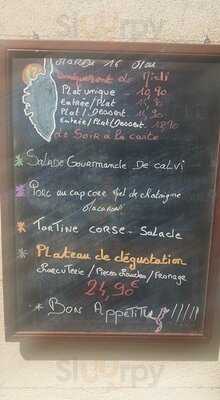 MARDI 16 Mai
Uniquement le Midi
Plat unique - 10,90
Entrée/Plat
Plat/Dessert
Entrée/Plat/Dessert 18,90
Le Soir à la carte
* SALADE GOURMANDE DE CALVI
* PORC au cap corse miel de chataigne
MACARONI
* TARTINE CORSE - SALADE
* Plateau de dégustation
CHARCUTERIE / / FROMAGE
24,90€
* BON APPÉTIT !!!!!!
Sluurpy